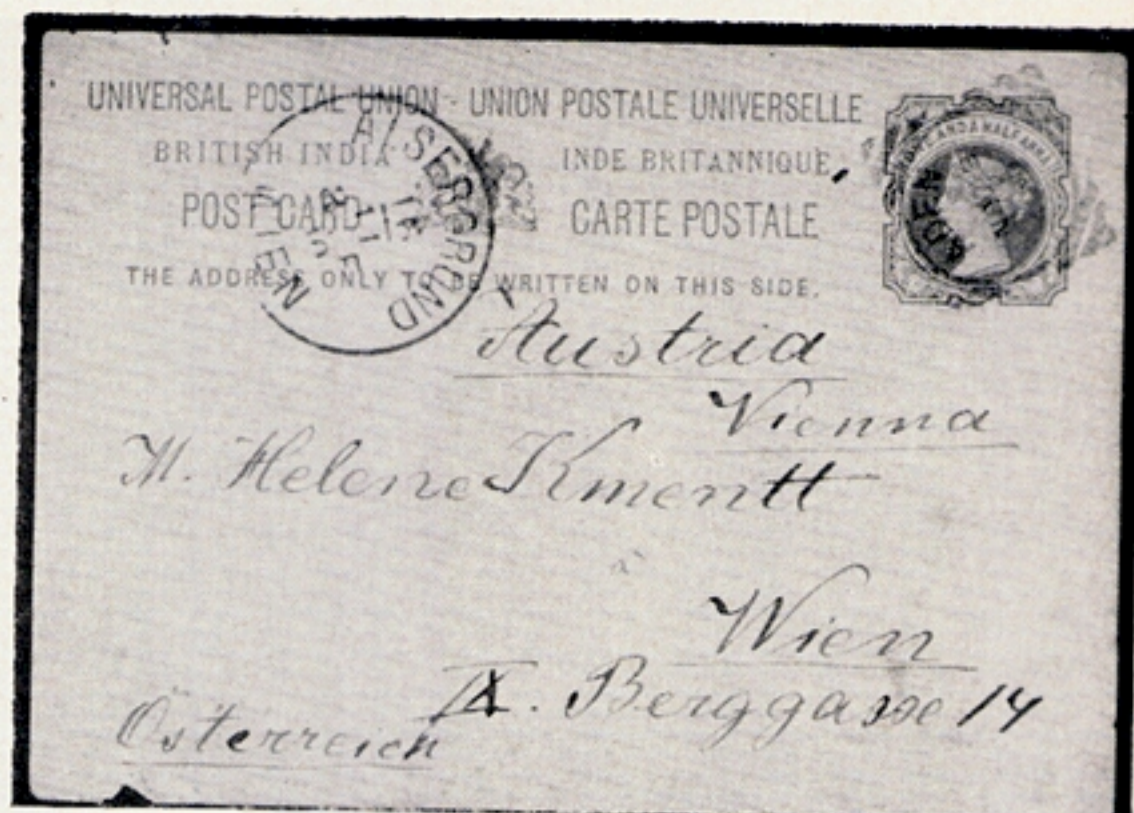 UNIVERSAL POSTAL UNION - UNION POSTALE UNIVERSELLE
BRITISH INDIA INDE BRITANNIQUE
POST CARD CARTE POSTALE
THE ADDRESS ONLY TO BE WRITTEN ON THIS SIDE.
ALSERGRUND
WIEN
ONE AND A HALF ANNA
ADEN
Austria
Vienna
M. Helene Kmentt
Wien
IX. Berggasse 14
Österreich